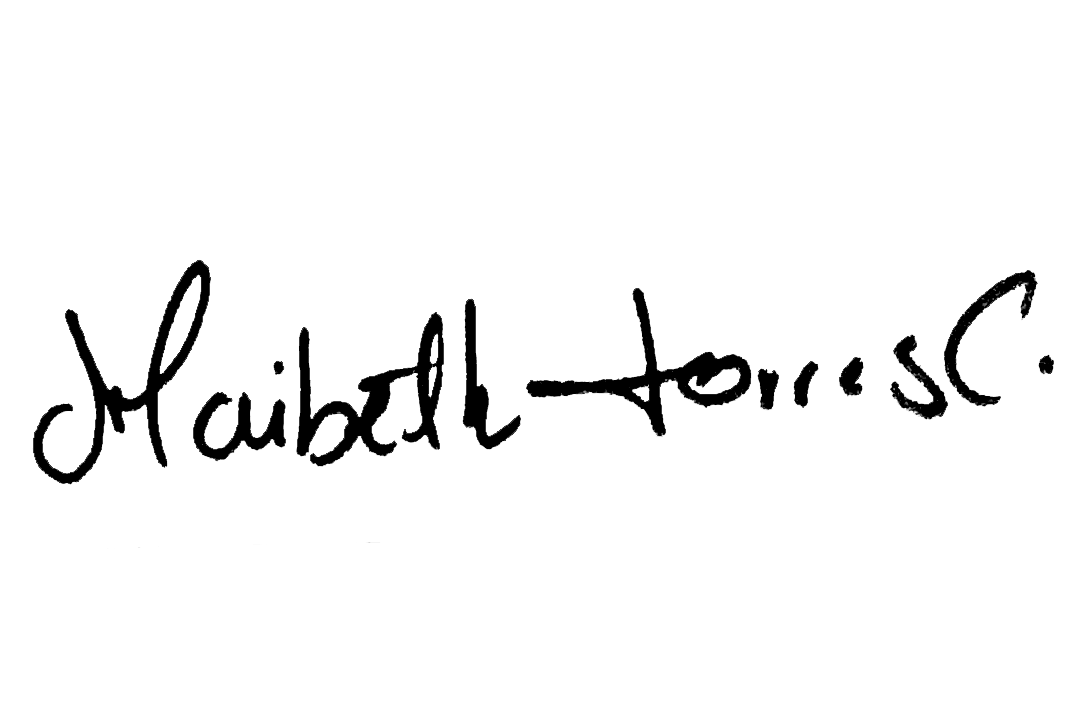 Maibeth Torres C.